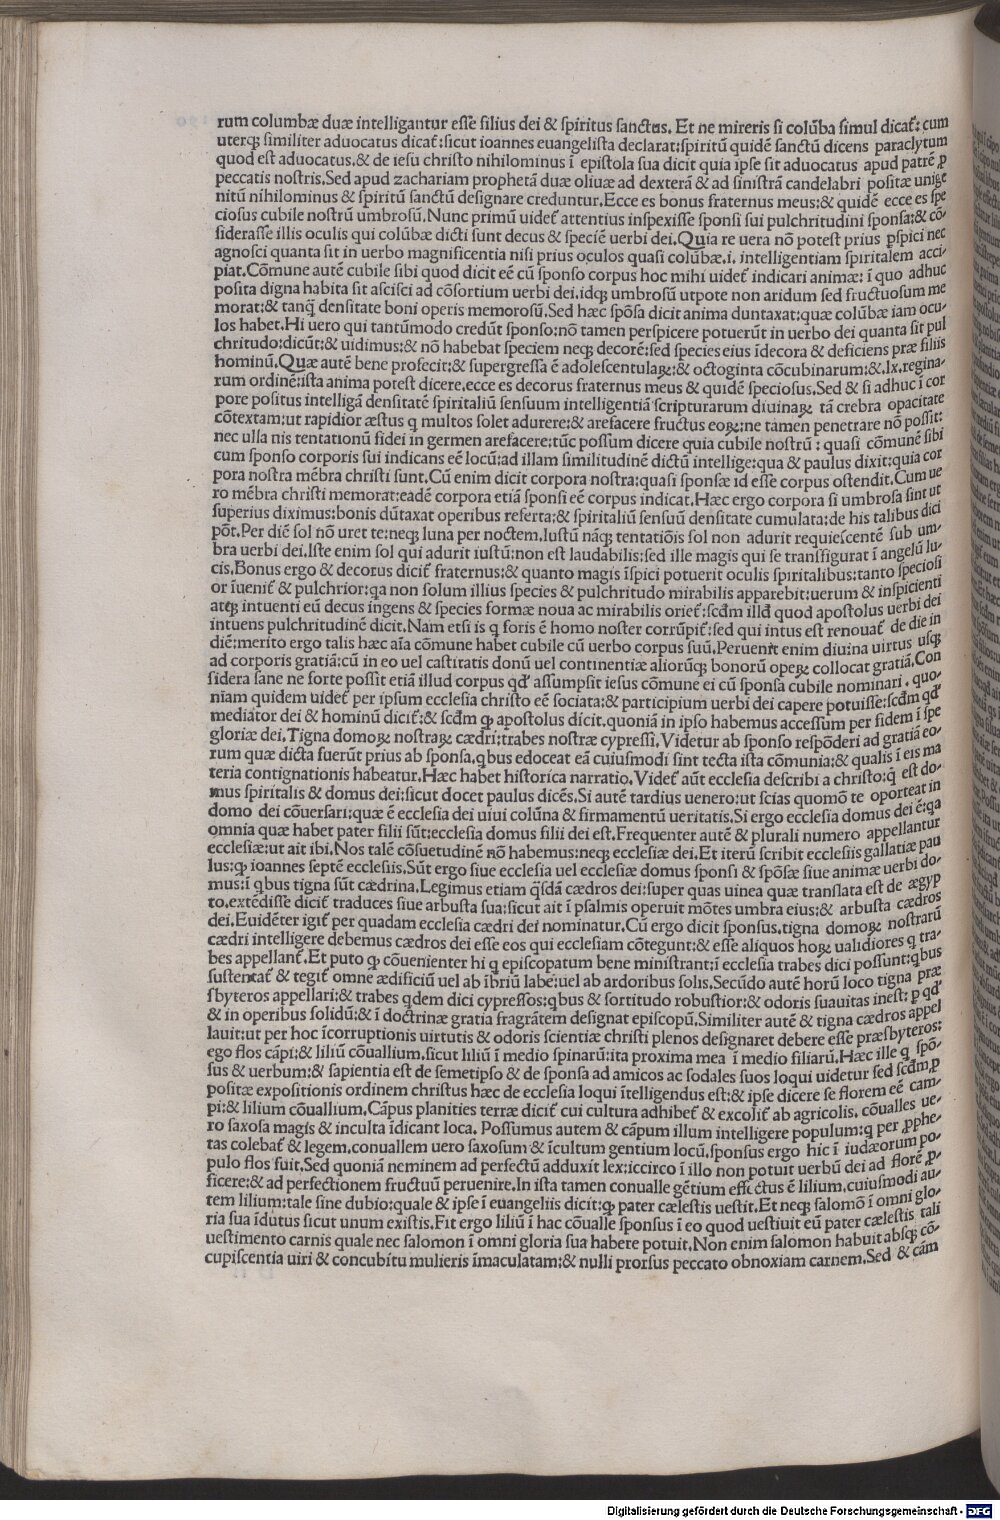 rum columbæ duæ intelligantur esse filius dei & spiritus sanctus. Et ne mireris si colũba simul dicať: cum
uterqꝫ similiter aduocatus dicať:sicut ioannes euangelista declarat:spiritũ quidẽ sanctũ dicens paraclytum
quod est aduocatus.& de iesu christo nihilominus ĩ epistola sua dicit quia ipse sit aduocatus apud patrẽ ꝑ
peccatis nostris.Sed apud zachariam prophetã duæ oliuæ ad dexterã & ad sinistrã candelabri positæ unige
nitũ nihilominus & spiritũ sanctũ designare creduntur.Ecce es bonus fraternus meus:& quidẽ ecce es spe
ciosus cubile nostrũ umbrosũ.Nunc primũ uideť attentius inspexisse sponsi sui pulchritudini sponsa:& cõ
siderasse illis oculis qui colũbæ dicti sunt decus & speciẽ uerbi dei.Quia re uera nõ potest prius ꝑspici nec
agnosci quanta sit in uerbo magnificentia nisi prius oculos quasi colũbæ.i. intelligentiam spiritalem acci/
piat.Cõmune autẽ cubile sibi quod dicit eẽ cũ sponso corpus hoc mihi uideť indicari animæ: ĩ quo adhuc
posita digna habita sit ascisci ad cõsortium uerbi dei.idqꝫ umbrosũ utpote non aridum sed fructuosum me
morat:& tanq̃ densitate boni operis memorosũ.Sed hæc spõsa dicit anima duntaxat:quæ colũbæ iam ocu/
los habet.Hi uero qui tantũmodo credũt sponso:nõ tamen perspicere potuerũt in uerbo dei quanta sit pul
chritudo:dicũt:& uidimus:& nõ habebat speciem neqꝫ decorẽ:sed species eius ĩdecora & deficiens præ filiis
hominũ.Quæ autẽ bene profecit:& supergressa ẽ adolescentulaꝝ:& octoginta cõcubinarum:&.lx.regina/
rum ordinẽ:ista anima potest dicere.ecce es decorus fraternus meus & quidẽ speciosus.Sed & si adhuc ĩ cor
pore positus intelligã densitatẽ spiritaliũ sensuum intelligentiã scripturarum diuinaꝝ tã crebra opacitate
cõtextam:ut rapidior æstus q multos solet adurere:& arefacere fructus eoꝝ:ne tamen penetrare nõ possit:
nec ulla nis tentationũ fidei in germen arefacere:tũc possum dicere quia cubile nostrũ : quasi cõmunẽ sibi
cum sponso corporis sui indicans eẽ locũ:ad illam similitudinẽ dictũ intellige:qua & paulus dixit:quia cor
pora nostra mẽbra christi sunt.Cũ enim dicit corpora nostra:quasi sponsæ id esse corpus ostendit.Cum ue
ro mẽbra christi memorat:eadẽ corpora etiã sponsi eẽ corpus indicat.Hæc ergo corpora si umbrosa sint ut
superius diximus:bonis dũtaxat operibus referta:& spiritaliũ sensuũ densitate cumulata:de his talibus dici
põt.Per diẽ sol nõ uret te:neqꝫ luna per noctem.Iustũ nãqꝫ tentatiõis sol non adurit requiescentẽ sub um/
bra uerbi dei.Iste enim sol qui adurit iustũ:non est laudabilis:sed ille magis qui se transfigurat ĩ angelũ lu/
cis.Bonus ergo & decorus diciť fraternus:& quanto magis ĩspici potuerit oculis spiritalibus:tanto speciosi
or ĩueniť & pulchrior:qa non solum illius species & pulchritudo mirabilis apparebit:uerum & inspicienti
atqꝫ intuenti eũ decus ingens & species formæ noua ac mirabilis orieť:scđm illđ quod apostolus uerbi dei
intuens pulchritudinẽ dicit.Nam etsi is q foris ẽ homo noster corrũpiť:sed qui intus est renouať de die in
diẽ:merito ergo talis hæc aĩa cõmune habet cubile cũ uerbo corpus suũ.Peruenit enim diuina uirtus usqꝫ
ad corporis gratiã:cũ in eo uel castitatis donũ uel continentiæ aliorũqꝫ bonorũ opeꝝ collocat gratiã.Con
sidera sane ne forte possit etiã illud corpus qđ assumpsit iesus cõmune ei cũ sponsa cubile nominari . quo/
niam quidem uideť per ipsum ecclesia christo eẽ sociata:& participium uerbi dei capere potuisse:scđm qđ
mediator dei & hominũ diciť:& scđm ꝙ apostolus dicit.quoniã in ipso habemus accessum per fidem ĩ spe
gloriæ dei.Tigna domoꝝ nostraꝝ cædri:trabes nostræ cypressi.Videtur ab sponso respõderi ad gratiã eo/
rum quæ dicta fuerũt prius ab sponsa.qbus edoceat eã cuiusmodi sint tecta ista cõmunia:& qualis ĩ eis ma
teria contignationis habeatur.Hæc habet historica narratio.Videť aũt ecclesia describi a christo:q̃ est do/
mus spiritalis & domus dei:sicut docet paulus dicẽs.Si autẽ tardius uenero:ut scias quomõ te oporteat in
domo dei cõuersari:quæ ẽ ecclesia dei uiui colũna & firmamentũ ueritatis.Si ergo ecclesia domus dei ẽ:qa
omnia quæ habet pater filii sũt:ecclesia domus filii dei est.Frequenter autẽ & plurali numero appellantur
ecclesiæ:ut ait ibi.Nos talẽ cõsuetudinẽ nõ habemus:neqꝫ ecclesiæ dei.Et iterũ scribit ecclesiis gallatiæ pau
lus:qꝫ ioannes septẽ ecclesiis.Sũt ergo siue ecclesia uel ecclesiæ domus sponsi & spõsæ siue animæ uerbi do/
mus:ĩ qbus tigna sũt cædrina.Legimus etiam q̃sdã cædros dei:super quas uinea quæ translata est de ægyp
to.extẽdisse diciť traduces siue arbusta sua:sicut ait ĩ psalmis operuit mõtes umbra eius:& arbusta cædros
dei.Euidẽter igiť per quadam ecclesia cædri dei nominatur.Cũ ergo dicit sponsus.tigna domoꝝ nostrarũ
cædri intelligere debemus cædros dei esse eos qui ecclesiam cõtegunt:& esse aliquos hoꝝ ualidiores q tra/
bes appellanť.Et puto ꝙ cõuenienter hi q episcopatum bene ministrant:ĩ ecclesia trabes dici possunt:qbus
sustentať & tegiť omne ædificiũ uel ab ĩbriũ labe:uel ab ardoribus solis.Secũdo autẽ horũ loco tigna præ
sbyteros appellari:& trabes qdem dici cypressos:qbus & fortitudo robustior:& odoris suauitas inest: ꝑ qđ
& in operibus solidũ:& ĩ doctrinæ gratia fragrãtem designat episcopũ.Similiter autẽ & tigna cædros appel
lauit:ut per hoc ĩcorruptionis uirtutis & odoris scientiæ christi plenos designaret debere esse præsbyteros:
ego flos cãpi:& liliũ cõuallium.sicut liliũ ĩ medio spinarũ:ita proxima mea ĩ medio filiarũ.Hæc ille q spõ/
sus & uerbum:& sapientia est de semetipso & de sponsa ad amicos ac sodales suos loqui uidetur sed scđm.ꝑ
positæ expositionis ordinem christus hæc de ecclesia loqui ĩtelligendus est:& ipse dicere se florem eẽ cam/
pi:& lilium cõuallium.Cãpus planities terræ diciť cui cultura adhibeť & excoliť ab agricolis. cõualles ue/
ro saxosa magis & inculta ĩdicant loca. Possumus autem & cãpum illum intelligere populum:q per ꝓphe/
tas colebať & legem.conuallem uero saxosum & ĩcultum gentium locũ.sponsus ergo hic ĩ iudæorum po/
pulo flos fuit.Sed quoniã neminem ad perfectũ adduxit lex:iccirco ĩ illo non potuit uerbũ dei ad florẽ ꝓ/
ficere:& ad perfectionem fructuũ peruenire.In ista tamen conualle gẽtium effectus ẽ lilium.cuiusmodi au/
tem lilium:tale sine dubio:quale & ipse ĩ euangeliis dicit:ꝙ pater cælestis uestit.Et neqꝫ salomõ ĩ omni glo/
ria sua ĩdutus sicut unum existis.Fit ergo liliũ ĩ hac cõualle sponsus ĩ eo quod uestiuit eũ pater cælestis tali
uestimento carnis quale nec salomon ĩ omni gloria sua habere potuit.Non enim salomon habuit absqꝫ cõ/
cupiscentia uiri & concubitu mulieris ĩmaculatam:& nulli prorsus peccato obnoxiam carnem.Sed & cãm
Digitalisierung gefördert durch die Deutsche Forschungsgemeinschaft - DFG